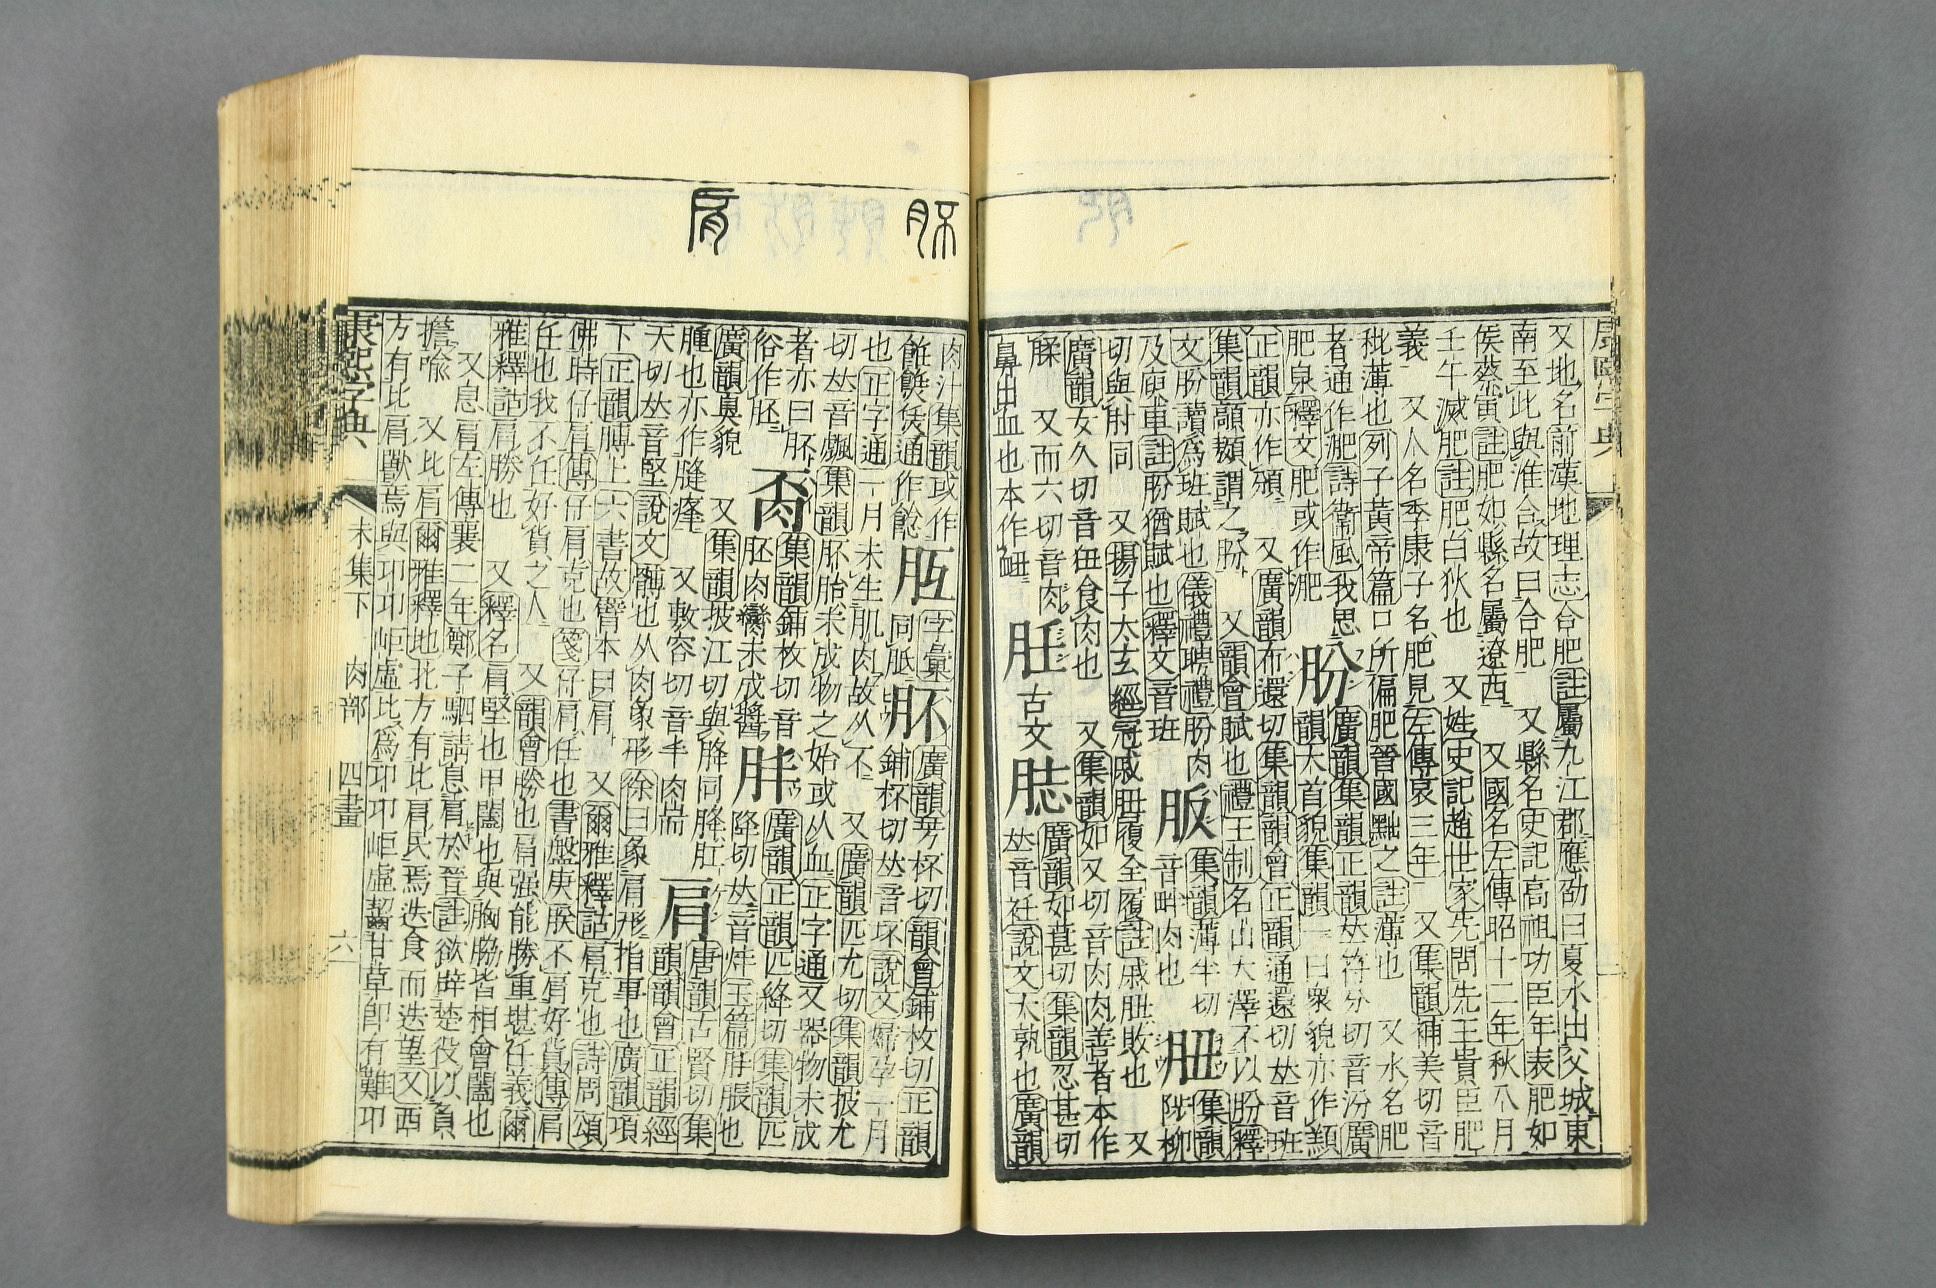 又地名前漢地理志合肥註屬九江郡應劭曰夏水出父城東
南至此與淮合故曰合肥 又縣名史記高祖功臣年表肥如
侯蔡寅註肥如縣名屬遼西 又國名左傳昭十二年秋八月
壬午滅肥註肥白狄也 又姓史記趙世家先問先王貴臣肥
義 又人名季康子名肥見左傳哀三年 又集韻補美切音
秕薄也列子黃帝篇口所偏肥晉國黜之註薄也 又水名肥
者通作淝詩衞風我思肥泉釋文肥或作淝
肦
廣韻集韻正韻𠀤符分切音汾廣韻大首貌集韻一曰眾貌亦作頒
正韻亦作頒 又廣韻布還切集韻韻會正韻通還切𠀤音班
集韻頒謂之肦 又韻會賦也禮王制名山大澤不以肦釋
文肦讀爲班賦也儀禮聘禮肦肉及廋車註肦猶賦也釋文音班
肦
集韻薄半切音畔肉也
胒
集韻陟柳切與肘同 又揚子大玄經冠戚胒履全履註戚胒敗也 又
廣韻女久切音狃食肉也 又集韻如又切音肉肉善者本作
腬 又而六切音肉
廣韻如甚切集韻忍甚切
𠀤音衽說文大熟也廣韻
鼻出血也本作衄
肉部 四畫
肉汁集韻或作
胚
字彙同胝
肧
廣韻芳杯切韻會鋪枚切正韻
鋪杯切𠀤音坏說文婦孕一月
也正字通一月未生肌肉故从不 又廣韻匹尤切集韻披尤
切𠀤音飄集韻肧胎未成物之始或从血正字通又器物未成
者亦曰肧俗作胚
集韻鋪枚切音胚肉臠未成醬
胖
廣韻正韻匹絳切集韻匹
降切𠀤音烊玉篇胖脹也
廣韻臭貌 又集韻披江切與胮同胮肛
腫也亦作膖瘇 又敷容切音丰肉耑
肩
唐韻古賢切集韻韻會正韻經
天切𠀤音堅說文髆也从肉象形徐曰象肩形指事也廣韻項
下正韻膊上六書故臂本曰肩 又爾雅釋詁肩克也詩周頌
佛時仔肩傳仔肩克也箋仔肩任也書盤庚朕不肩好貨傳肩
任也我不任好貨之人 又韻會勝也肩强能勝重堪任義爾
雅釋詁肩勝也 又釋名肩堅也甲闔也與胸脇皆相會闔也
又息肩左傳襄二年鄭子駟請息肩於晉註欲辟楚役以負
擔喩 又比肩爾雅釋地北方有比肩民焉迭食而迭望又西
方有比肩獸焉與卭卭岠虛比爲卭卭岠虛齧甘草卽有難卭
康熙字典 未集下 肉部 四畫 六